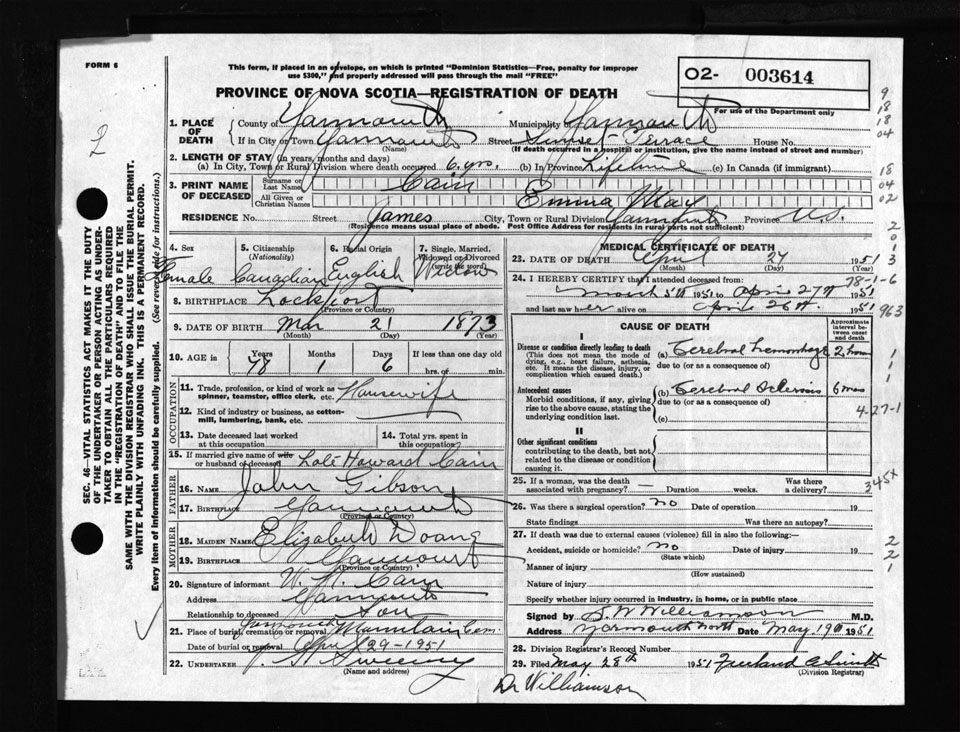 FORM 6
This form, if placed in an envelope, on which is printed "Dominion Statistics—Free, penalty for improper
use $300," and properly addressed will pass through the mail "FREE"
O2- 003614
PROVINCE OF NOVA SCOTIA—REGISTRATION OF DEATH
For use of the Department only
1. PLACE OF DEATH
County of Yarmouth Municipality of Yarmouth
If in City or Town Yarmouth Street Sunset Terrace House No.
(Name) (If death occurred in a hospital or institution, give the name instead of street and number)
2. LENGTH OF STAY (in years, months and days)
(a) In City, Town or Rural Division where death occurred 6 yrs. (b) In Province Lifetime (c) In Canada (if immigrant)
3. PRINT NAME OF DECEASED
Surname or Last Name Cain
All Given or Christian Names Emma May
RESIDENCE No. Street James City, Town or Rural Division Yarmouth Province N.S.
(Residence means usual place of abode. Post Office Address for residents in rural parts not sufficient)
4. Sex
Female
5. Citizenship
(Nationality)
Canadian
6. Racial Origin
English
7. Single, Married, Widowed or Divorced
(write the word)
Widow
8. BIRTHPLACE Lockport
(Province or Country)
9. DATE OF BIRTH Mar 21 1873
(Month) (Day) (Year)
10. AGE in Years Months Days If less than one day old
78 1 6 hrs. or min.
OCCUPATION
11. Trade, profession, or kind of work as
spinner, teamster, office clerk, etc. Housewife
12. Kind of industry or business, as cotton-
mill, lumbering, bank, etc.
13. Date deceased last worked
at this occupation
14. Total yrs. spent in
this occupation
15. If married give name of wife
or husband of deceased Late Howard Cain
FATHER
16. NAME John Gibson
17. BIRTHPLACE Yarmouth
(Province or Country)
MOTHER
18. MAIDEN NAME Elizabeth Doane
19. BIRTHPLACE Yarmouth
(Province or Country)
20. Signature of informant W. H. Cain
Address Yarmouth
Relationship to deceased Son
21. Place of burial, cremation or removal Yarmouth Mountain Cem.
Date of burial or removal April 29-1951
22. UNDERTAKER Sweeny
(Name and address)
MEDICAL CERTIFICATE OF DEATH
23. DATE OF DEATH April 27 1951
(Month) (Day) (Year)
24. I HEREBY CERTIFY that I attended deceased from:
March 5th 1951 to April 27th 1951
and last saw her alive on April 26th 1951
CAUSE OF DEATH
Approximate interval between onset and death
I
Disease or condition directly leading to death
(This does not mean the mode of dying, e.g., heart failure, asthenia, etc. It means the disease, injury, or complication which caused death.)
(a) Cerebral Hemorrhage 2 hours
due to (or as a consequence of)
Antecedent causes
Morbid conditions, if any, giving rise to the above cause, stating the underlying condition last.
(b) Cerebral Sclerosis 6 mos
due to (or as a consequence of)
4-27-1
(c)
II
Other significant conditions
contributing to the death, but not related to the disease or condition causing it.
25. If a woman, was the death
associated with pregnancy? — Duration weeks. Was there a delivery?
26. Was there a surgical operation? no Date of operation 19
State findings Was there an autopsy?
27. If death was due to external causes (violence) fill in also the following:—
Accident, suicide or homicide? no Date of injury 19
(State which)
Manner of injury
(How sustained)
Nature of injury
Specify whether injury occurred in industry, in home, or in public place
Signed by S. W. Williamson M.D.
Address Yarmouth North Date May 19th 1951
28. Division Registrar's Record Number
29. Filed May 28th 1951
(Division Registrar)
Dr Williamson
SEC. 46—VITAL STATISTICS ACT MAKES IT THE DUTY
OF THE UNDERTAKER OR PERSON ACTING AS UNDER-
TAKER TO OBTAIN ALL THE PARTICULARS REQUIRED
IN THE "REGISTRATION OF DEATH" AND TO FILE THE
SAME WITH THE DIVISION REGISTRAR WHO SHALL ISSUE THE BURIAL PERMIT.
WRITE PLAINLY WITH UNFADING INK. THIS IS A PERMANENT RECORD.
Every item of information should be carefully supplied. (See reverse side for instructions.)
2
9
18
18
04
18
04
02
2
0
1
3
78-1-6
963
1
1
1
345x
2
2
1